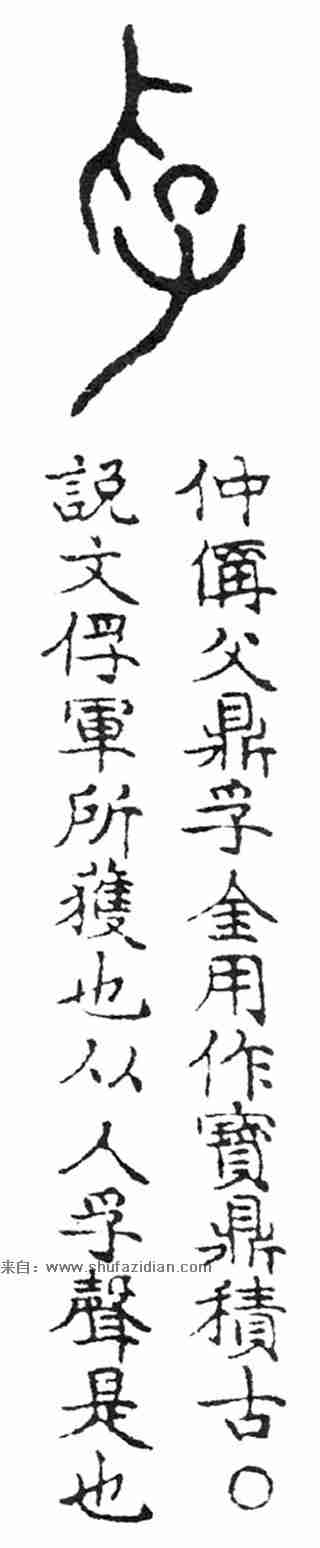 孚
仲偁父鼎孚金用作寶鼎積古○
說文俘軍所獲也从人孚聲是也
来自：www.shufazidian.com